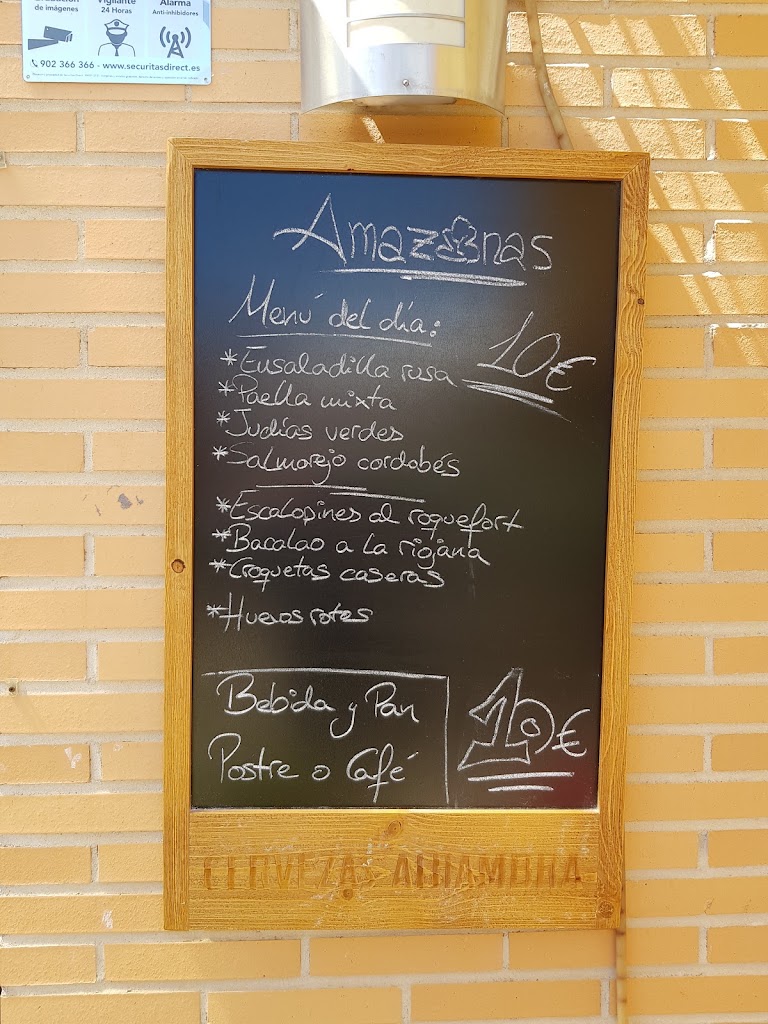 de imágenes
Vigilante
24 Horas
Alarma
Anti-inhibidores
902 366 366 - www.securitasdirect.es
Amazonas
Menú del día:
10€
*Ensaladilla rusa
*Paella mixta
*Judías verdes
*Salmorejo cordobés
*Escalopines al roquefort
*Bacalao a la riojana
*Croquetas caseras
*Huevos rotos
Bebida y Pan
Postre o Café
10€
CERVEZAS ALHAMBRA